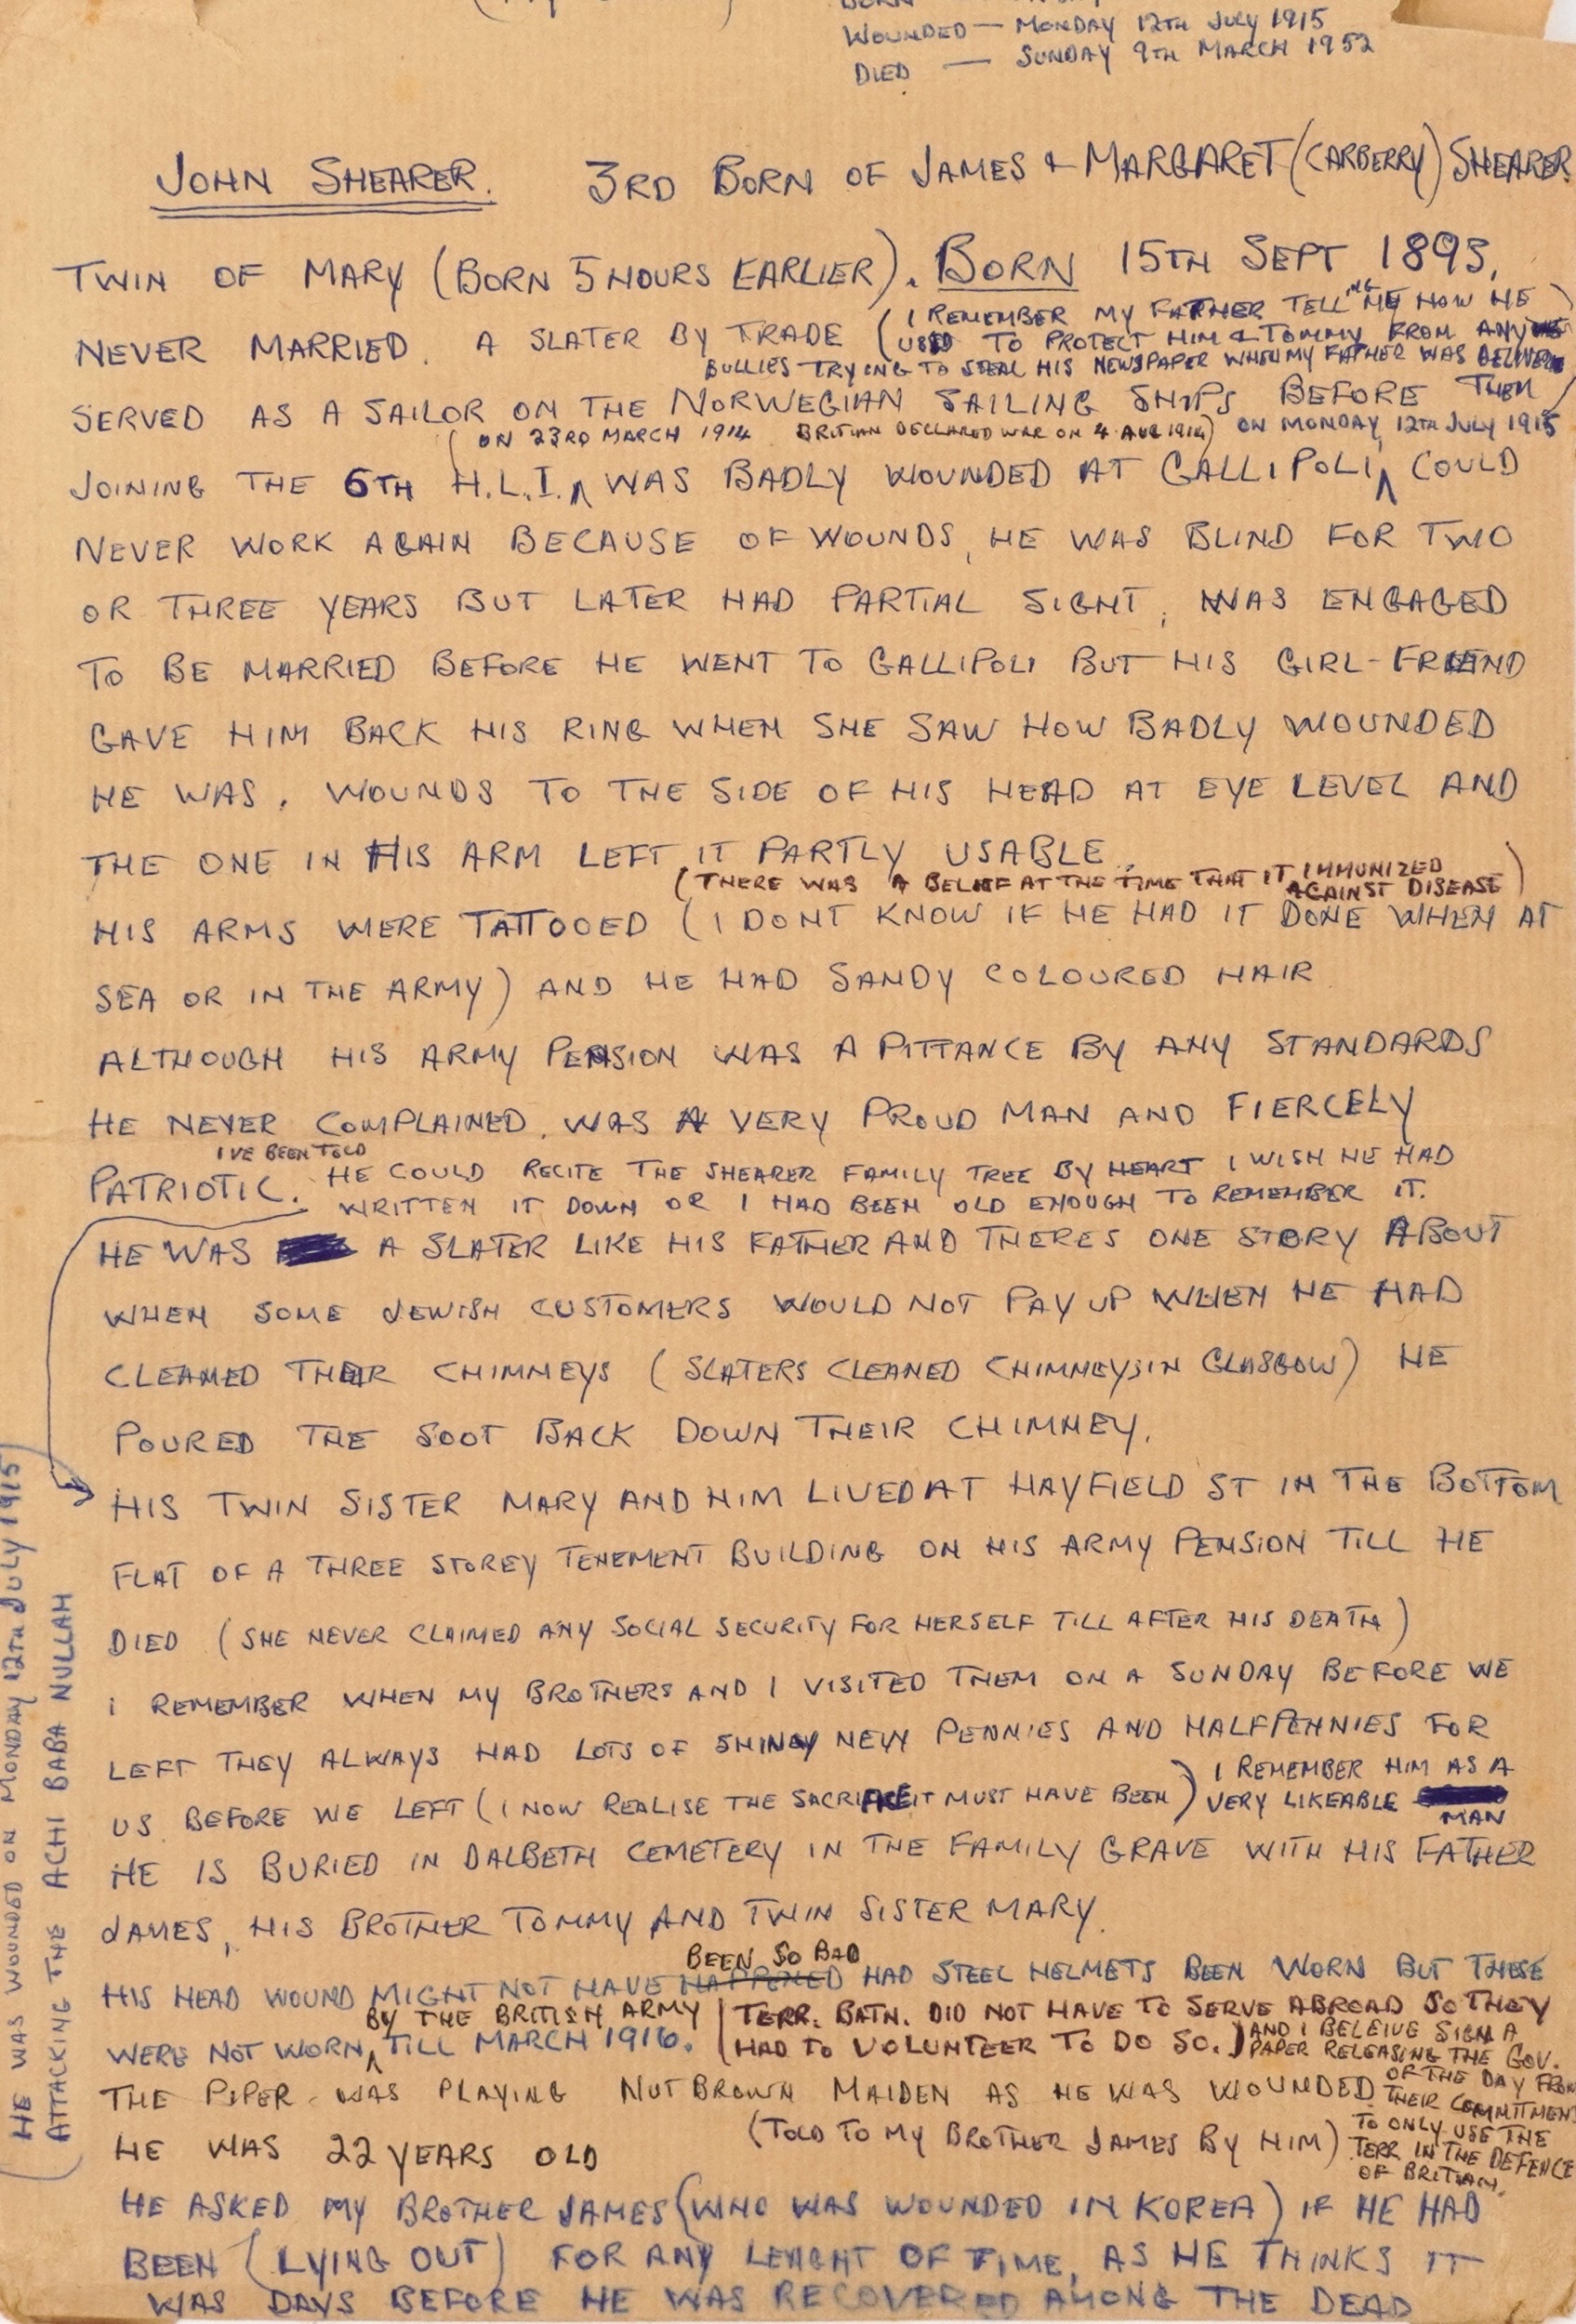 WOUNDED — MONDAY 12TH JULY 1915
DIED — SUNDAY 9TH MARCH 1952
JOHN SHEARER. 3RD BORN OF JAMES & MARGARET (CARBERRY) SHEARER
TWIN OF MARY (BORN 5 HOURS EARLIER). BORN 15TH SEPT 1893,
(I REMEMBER MY FATHER TELLING ME HOW HE
NEVER MARRIED. A SLATER BY TRADE USED TO PROTECT HIM & TOMMY FROM ANY
BULLIES TRYING TO STEAL HIS NEWSPAPER WHEN MY FATHER WAS
SERVED AS A SAILOR ON THE NORWEGIAN SAILING SHIPS BEFORE THEM)
(ON 23RD MARCH 1914 BRITIAN DECLARED WAR ON 4 AUG 1914) ON MONDAY, 12TH JULY 1915
JOINING THE 6TH H.L.I. WAS BADLY WOUNDED AT GALLIPOLI, COULD
NEVER WORK AGAIN BECAUSE OF WOUNDS, HE WAS BLIND FOR TWO
OR THREE YEARS BUT LATER HAD PARTIAL SIGHT, WAS ENGAGED
TO BE MARRIED BEFORE HE WENT TO GALLIPOLI BUT HIS GIRL-FRIEND
GAVE HIM BACK HIS RING WHEN SHE SAW HOW BADLY WOUNDED
HE WAS. WOUNDS TO THE SIDE OF HIS HEAD AT EYE LEVEL AND
THE ONE IN HIS ARM LEFT IT PARTLY USABLE.
(THERE WAS A BELIEF AT THE TIME THAT IT IMMUNIZED AGAINST DISEASE)
HIS ARMS WERE TATTOOED (I DONT KNOW IF HE HAD IT DONE WHEN AT
SEA OR IN THE ARMY) AND HE HAD SANDY COLOURED HAIR
ALTHOUGH HIS ARMY PENSION WAS A PITTANCE BY ANY STANDARDS
HE NEVER COMPLAINED. WAS A VERY PROUD MAN AND FIERCELY
I'VE BEEN TOLD
PATRIOTIC. HE COULD RECITE THE SHEARER FAMILY TREE BY HEART I WISH HE HAD
WRITTEN IT DOWN OR I HAD BEEN OLD ENOUGH TO REMEMBER IT.
HE WAS A SLATER LIKE HIS FATHER AND THERES ONE STORY ABOUT
WHEN SOME JEWISH CUSTOMERS WOULD NOT PAY UP WHEN HE HAD
CLEANED THEIR CHIMNEYS (SLATERS CLEANED CHIMNEYS IN GLASGOW) HE
POURED THE SOOT BACK DOWN THEIR CHIMNEY.
HIS TWIN SISTER MARY AND HIM LIVED AT HAYFIELD ST IN THE BOTTOM
FLAT OF A THREE STOREY TENEMENT BUILDING ON HIS ARMY PENSION TILL HE
DIED (SHE NEVER CLAIMED ANY SOCIAL SECURITY FOR HERSELF TILL AFTER HIS DEATH)
I REMEMBER WHEN MY BROTHERS AND I VISITED THEM ON A SUNDAY BEFORE WE
LEFT THEY ALWAYS HAD LOTS OF SHINEY NEW PENNIES AND HALFPENNIES FOR
US BEFORE WE LEFT (I NOW REALISE THE SACRIFICE IT MUST HAVE BEEN) I REMEMBER HIM AS A
VERY LIKEABLE MAN
HE IS BURIED IN DALBETH CEMETERY IN THE FAMILY GRAVE WITH HIS FATHER
JAMES, HIS BROTHER TOMMY AND TWIN SISTER MARY.
BEEN SO BAD
HIS HEAD WOUND MIGHT NOT HAVE HAPPENED HAD STEEL HELMETS BEEN WORN BUT THESE
BY THE BRITISH ARMY
WERE NOT WORN TILL MARCH 1916.
(TERR. BATN. DID NOT HAVE TO SERVE ABROAD SO THEY
HAD TO VOLUNTEER TO DO SO.)
AND I BELEIVE SIGN A
PAPER RELEASING THE GOV.
OF THE DAY FROM
THEIR COMMITMENT
TO ONLY USE THE
TERR IN THE DEFENCE
OF BRITIAN.
THE PIPER WAS PLAYING NUT BROWN MAIDEN AS HE WAS WOUNDED.
(TOLD TO MY BROTHER JAMES BY HIM)
HE WAS 22 YEARS OLD
HE ASKED MY BROTHER JAMES (WHO WAS WOUNDED IN KOREA) IF HE HAD
BEEN (LYING OUT) FOR ANY LENGHT OF TIME, AS HE THINKS IT
WAS DAYS BEFORE HE WAS RECOVERED AMONG THE DEAD
(HE WAS WOUNDED ON MONDAY 12TH JULY 1915)
ATTACKING THE ACHI BABA NULLAH